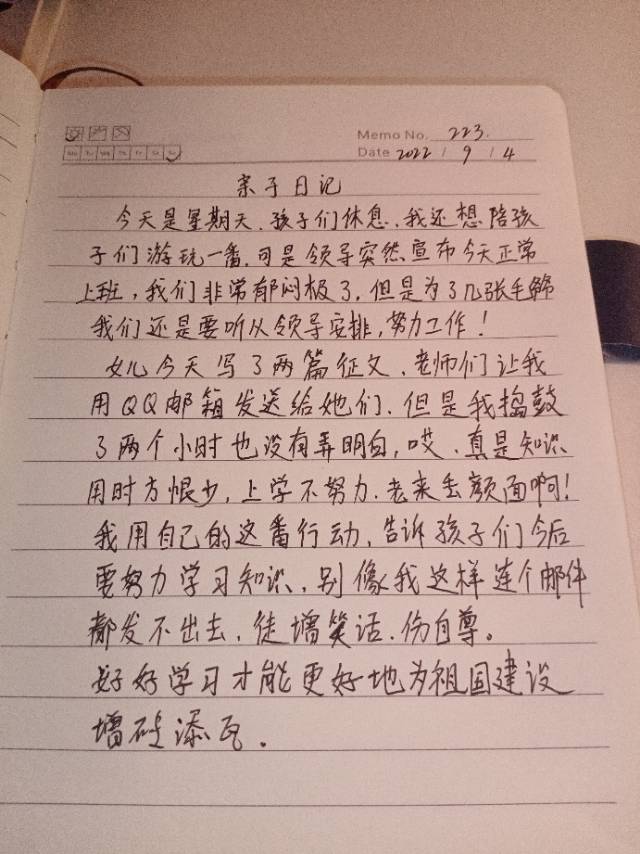 Memo No. 223.
Mo Tu We Th Fr Sa Su
Date 2022 / 9 / 4
亲子日记
今天是星期天、孩子们休息、我还想陪孩
子们游玩一番,可是领导突然宣布今天正常
上班，我们非常郁闷极了,但是为了几张毛爷爷
我们还是要听从领导安排,努力工作！
女儿今天写了两篇征文、老师们让我
用QQ邮箱发送给她们,但是我捣鼓
了两个小时也没有弄明白,哎、真是知识
用时方恨少,上学不努力.老来丢颜面啊！
我用自己的这番行动,告诉孩子们今后
要努力学习知识、别像我这样连个邮件
都发不出去,徒增笑话.伤自尊。
好好学习才能更好地为祖国建设
增砖添瓦.